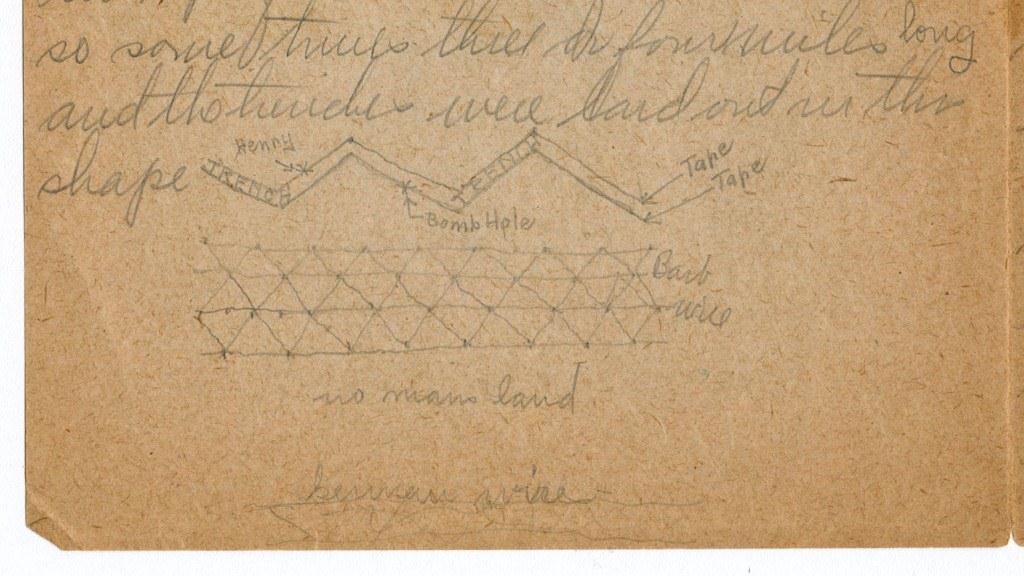 so some times three or four miles long
and the trenches were laid out in this
shape
Henry
TRENCH
TRENCH
Tape
Tape
Bomb Hole
Barb
wire
no mans land
german wire